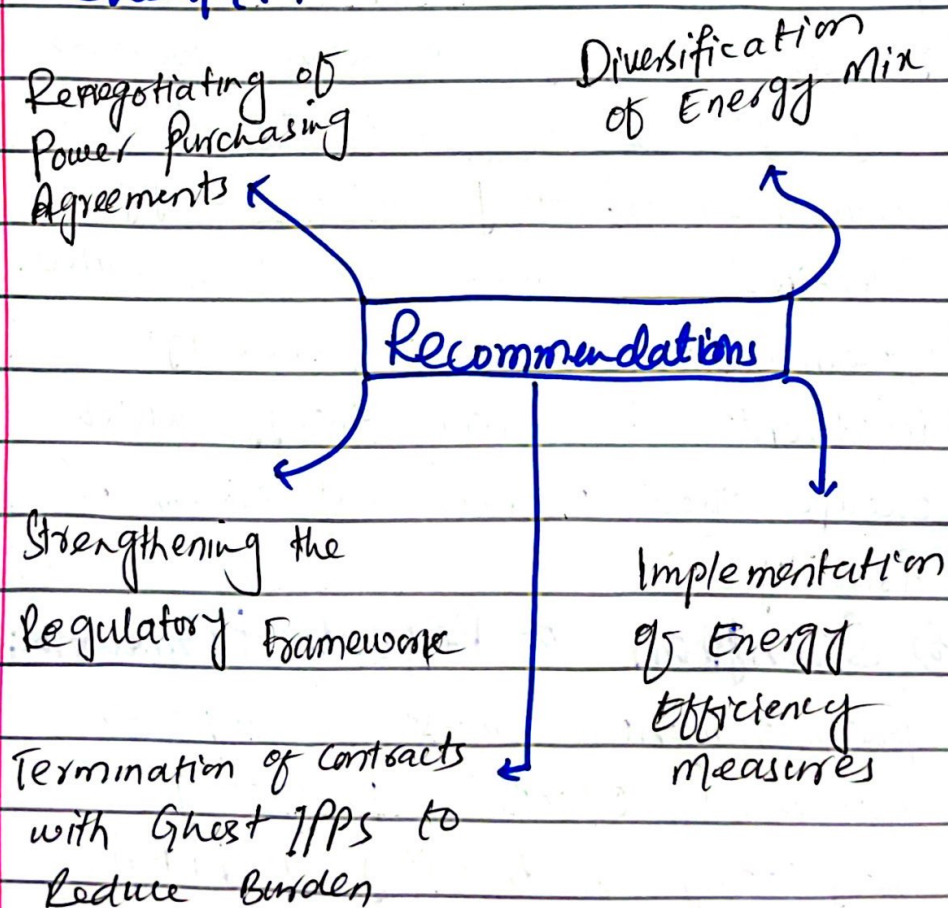 Renegotiating of
Power Purchasing
Agreements
Diversification
of Energy Mix
Recommendations
Strengthening the
Regulatory Framework
Implementation
of Energy
Efficiency
Measures
Termination of Contracts
with Ghost IPPs to
Reduce Burden